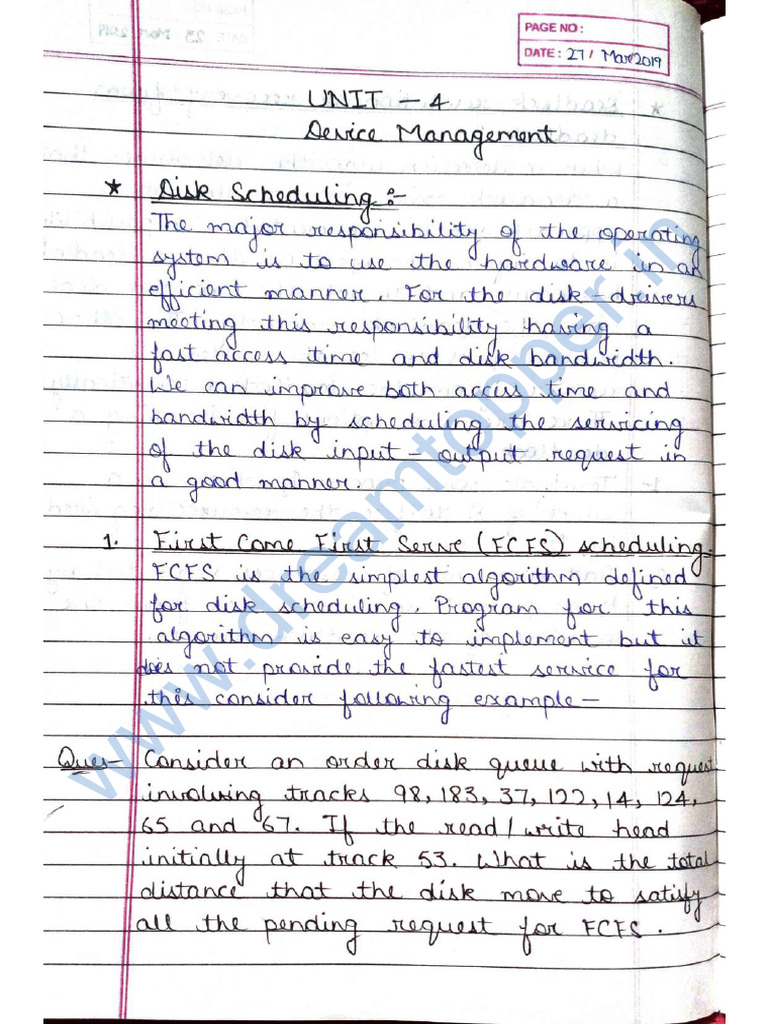 PAGE NO:
DATE: 27/ Mar 2019
UNIT - 4
Device Management
* Disk Scheduling :-
The major responsibility of the operating
system is to use the hardware in an
efficient manner. For the disk-drivers
meeting this responsibility having a
fast access time and disk bandwidth.
We can improve both access time and
bandwidth by scheduling the servicing
of the disk input - output request in
a good manner.
1. First Come First Serve (FCFS) scheduling:-
FCFS is the simplest algorithm defined
for disk scheduling. Program for this
algorithm is easy to implement but it
does not provide the fastest service for
this consider following example-
Ques- Consider an order disk queue with request
involving tracks 98, 183, 37, 122, 14, 124,
65 and 67. If the read/write head
initially at track 53. What is the total
distance that the disk move to satisfy
all the pending request for FCFS.
www.dreamtopper.in